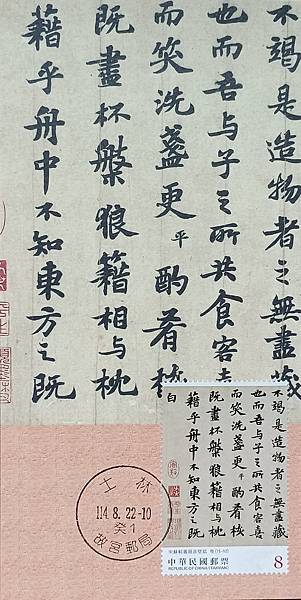 不竭是造物者之無盡藏
也而吾与子之所共食客喜
而笑洗盞更平酌肴核
既盡杯槃狼籍相与枕
藉乎舟中不知東方之既
不竭是造物者之無盡藏
也而吾与子之所共食客喜
而笑洗盞更平酌肴核
既盡杯槃狼籍相与枕
藉乎舟中不知東方之既
白
中華民國郵票
REPUBLIC OF CHINA (TAIWAN)
8
士林
114.8.22-10
癸1
故宮郵局